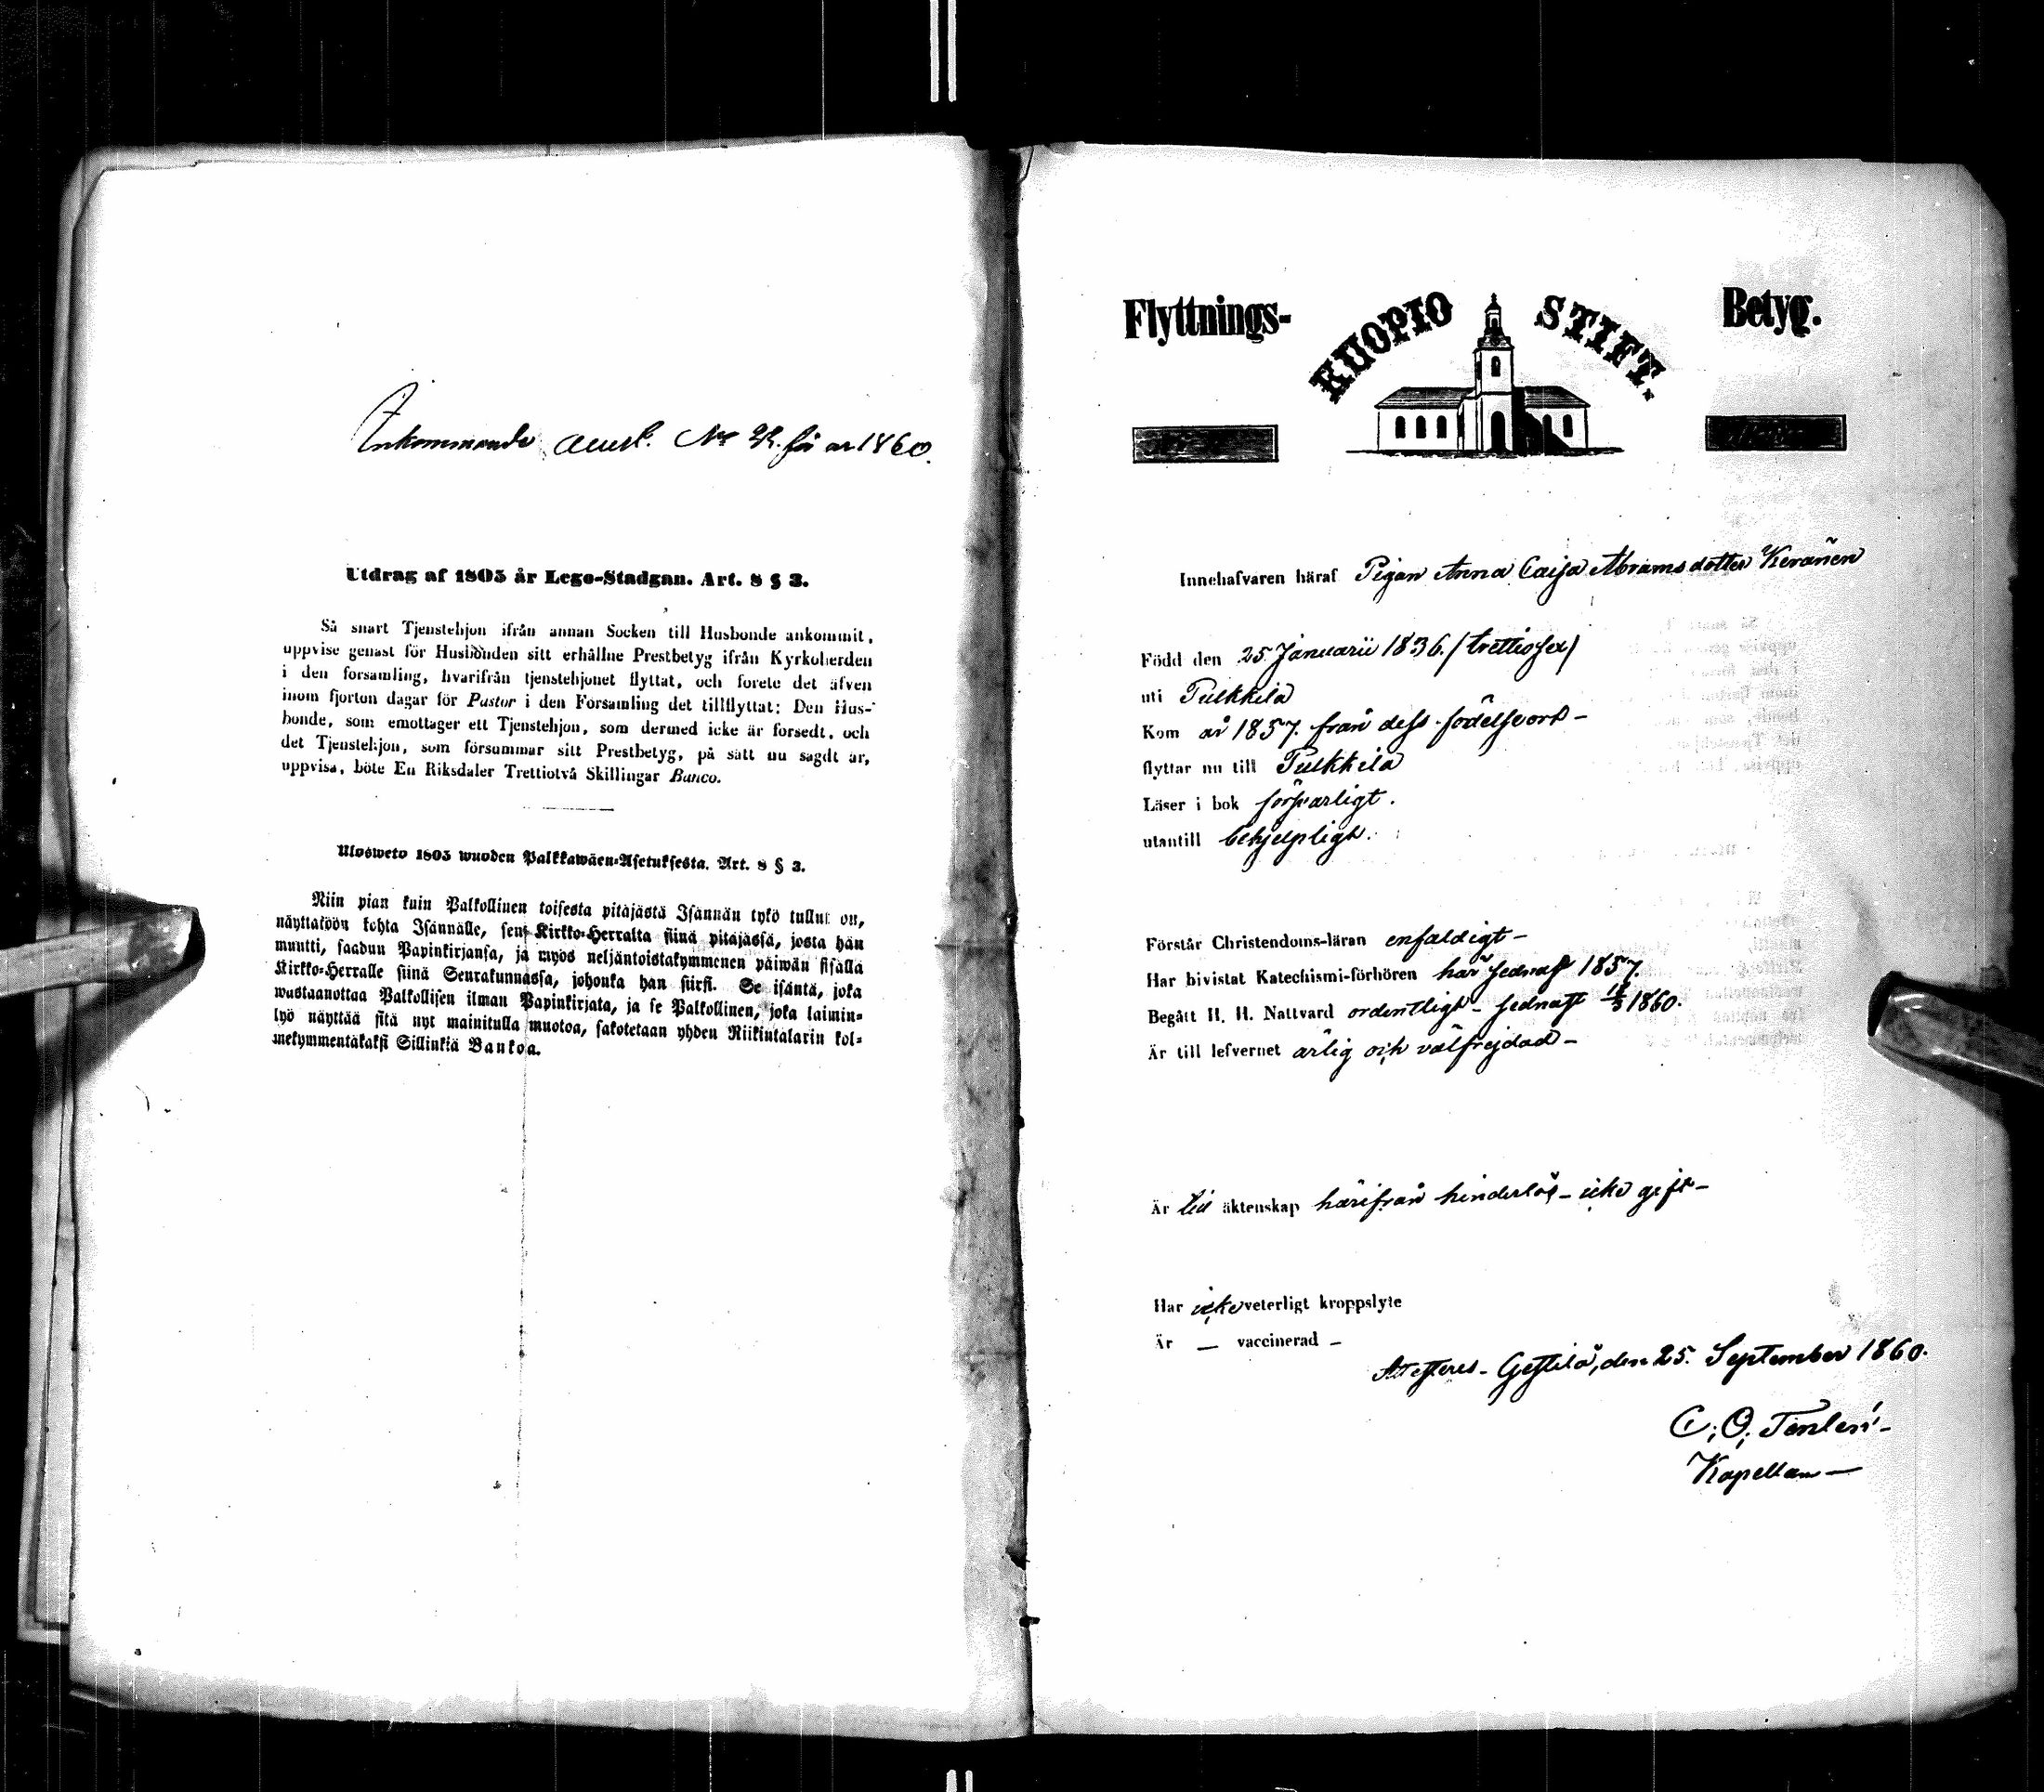 Inkommande attest. No 2/2. för år 1860.
Utdrag af 1805 år Lego-Stadgan. Art. 8 § 3.
Så snart Tjenstehjon ifrån annan Socken till Husbonde ankommit,
uppvise genast för Husbonden sitt erhållne Prestbetyg ifrån Kyrkoherden
i den församling, hvarifrån tjenstehjonet flyttat, och forete det äfven
inom fjorton dagar för Pastor i den Församling det tillflyttat: Den Hus-
bonde, som emottager ett Tjenstehjon, som dermed icke är försedt, och
det Tjenstehjon, som försummar sitt Prestbetyg, på sätt nu sagdt är,
uppvisa, böte En Riksdaler Trettiotvå Skillingar Banco.
Ulosweto 1805 wuoden Palkkawäen-Asetuksesta. Art. 8 § 3.
Niin pian kuin Palkollinen toisesta pitäjästä Isännän tykö tullut on,
näyttäköön kohta Isännälle, sen Kirkko-Herralta siinä pitäjässä, josta hän
muutti, saadun Papinkirjansa, ja myös neljäntoistakymmenen päiwän sisällä
Kirkko-Herralle siinä Seurakunnassa, johonka hän siirsi. Se isäntä, joka
wastaanottaa Palkollisen ilman Papinkirjata, ja se Palkollinen, joka laimin-
lyö näyttää sitä nyt mainitulla muotoa, sakotetaan yhden Riikintalarin kol-
mekymmentäkaksi Sillinkiä Bankoa.
Flyttnings- KUOPIO STIFT. Betyg.
Innehafvaren häraf Pigan Anna Caisa Abramsdotter Keränen
Född den 25 Januarii 1836. /trettiosex/
uti Pulkkila
Kom år 1857. från dess födelseort -
flyttar nu till Pulkkila
Läser i bok försvarligt.
utantill behjelpligt.
Förstår Christendoms-läran enfaldigt -
Har bivistat Katechismi-förhören här sednast 1857.
Begått H. H. Nattvard ordentligt - sednast 1860.
Är till lefvernet ärlig och välfrejdad -
Är till äktenskap härifrån hinderlös - icke gift -
Har icke veterligt kroppslyte
Är — vaccinerad -
Attesteras - Gestilä, den 25. September 1860.
C. O.
Kapellan -